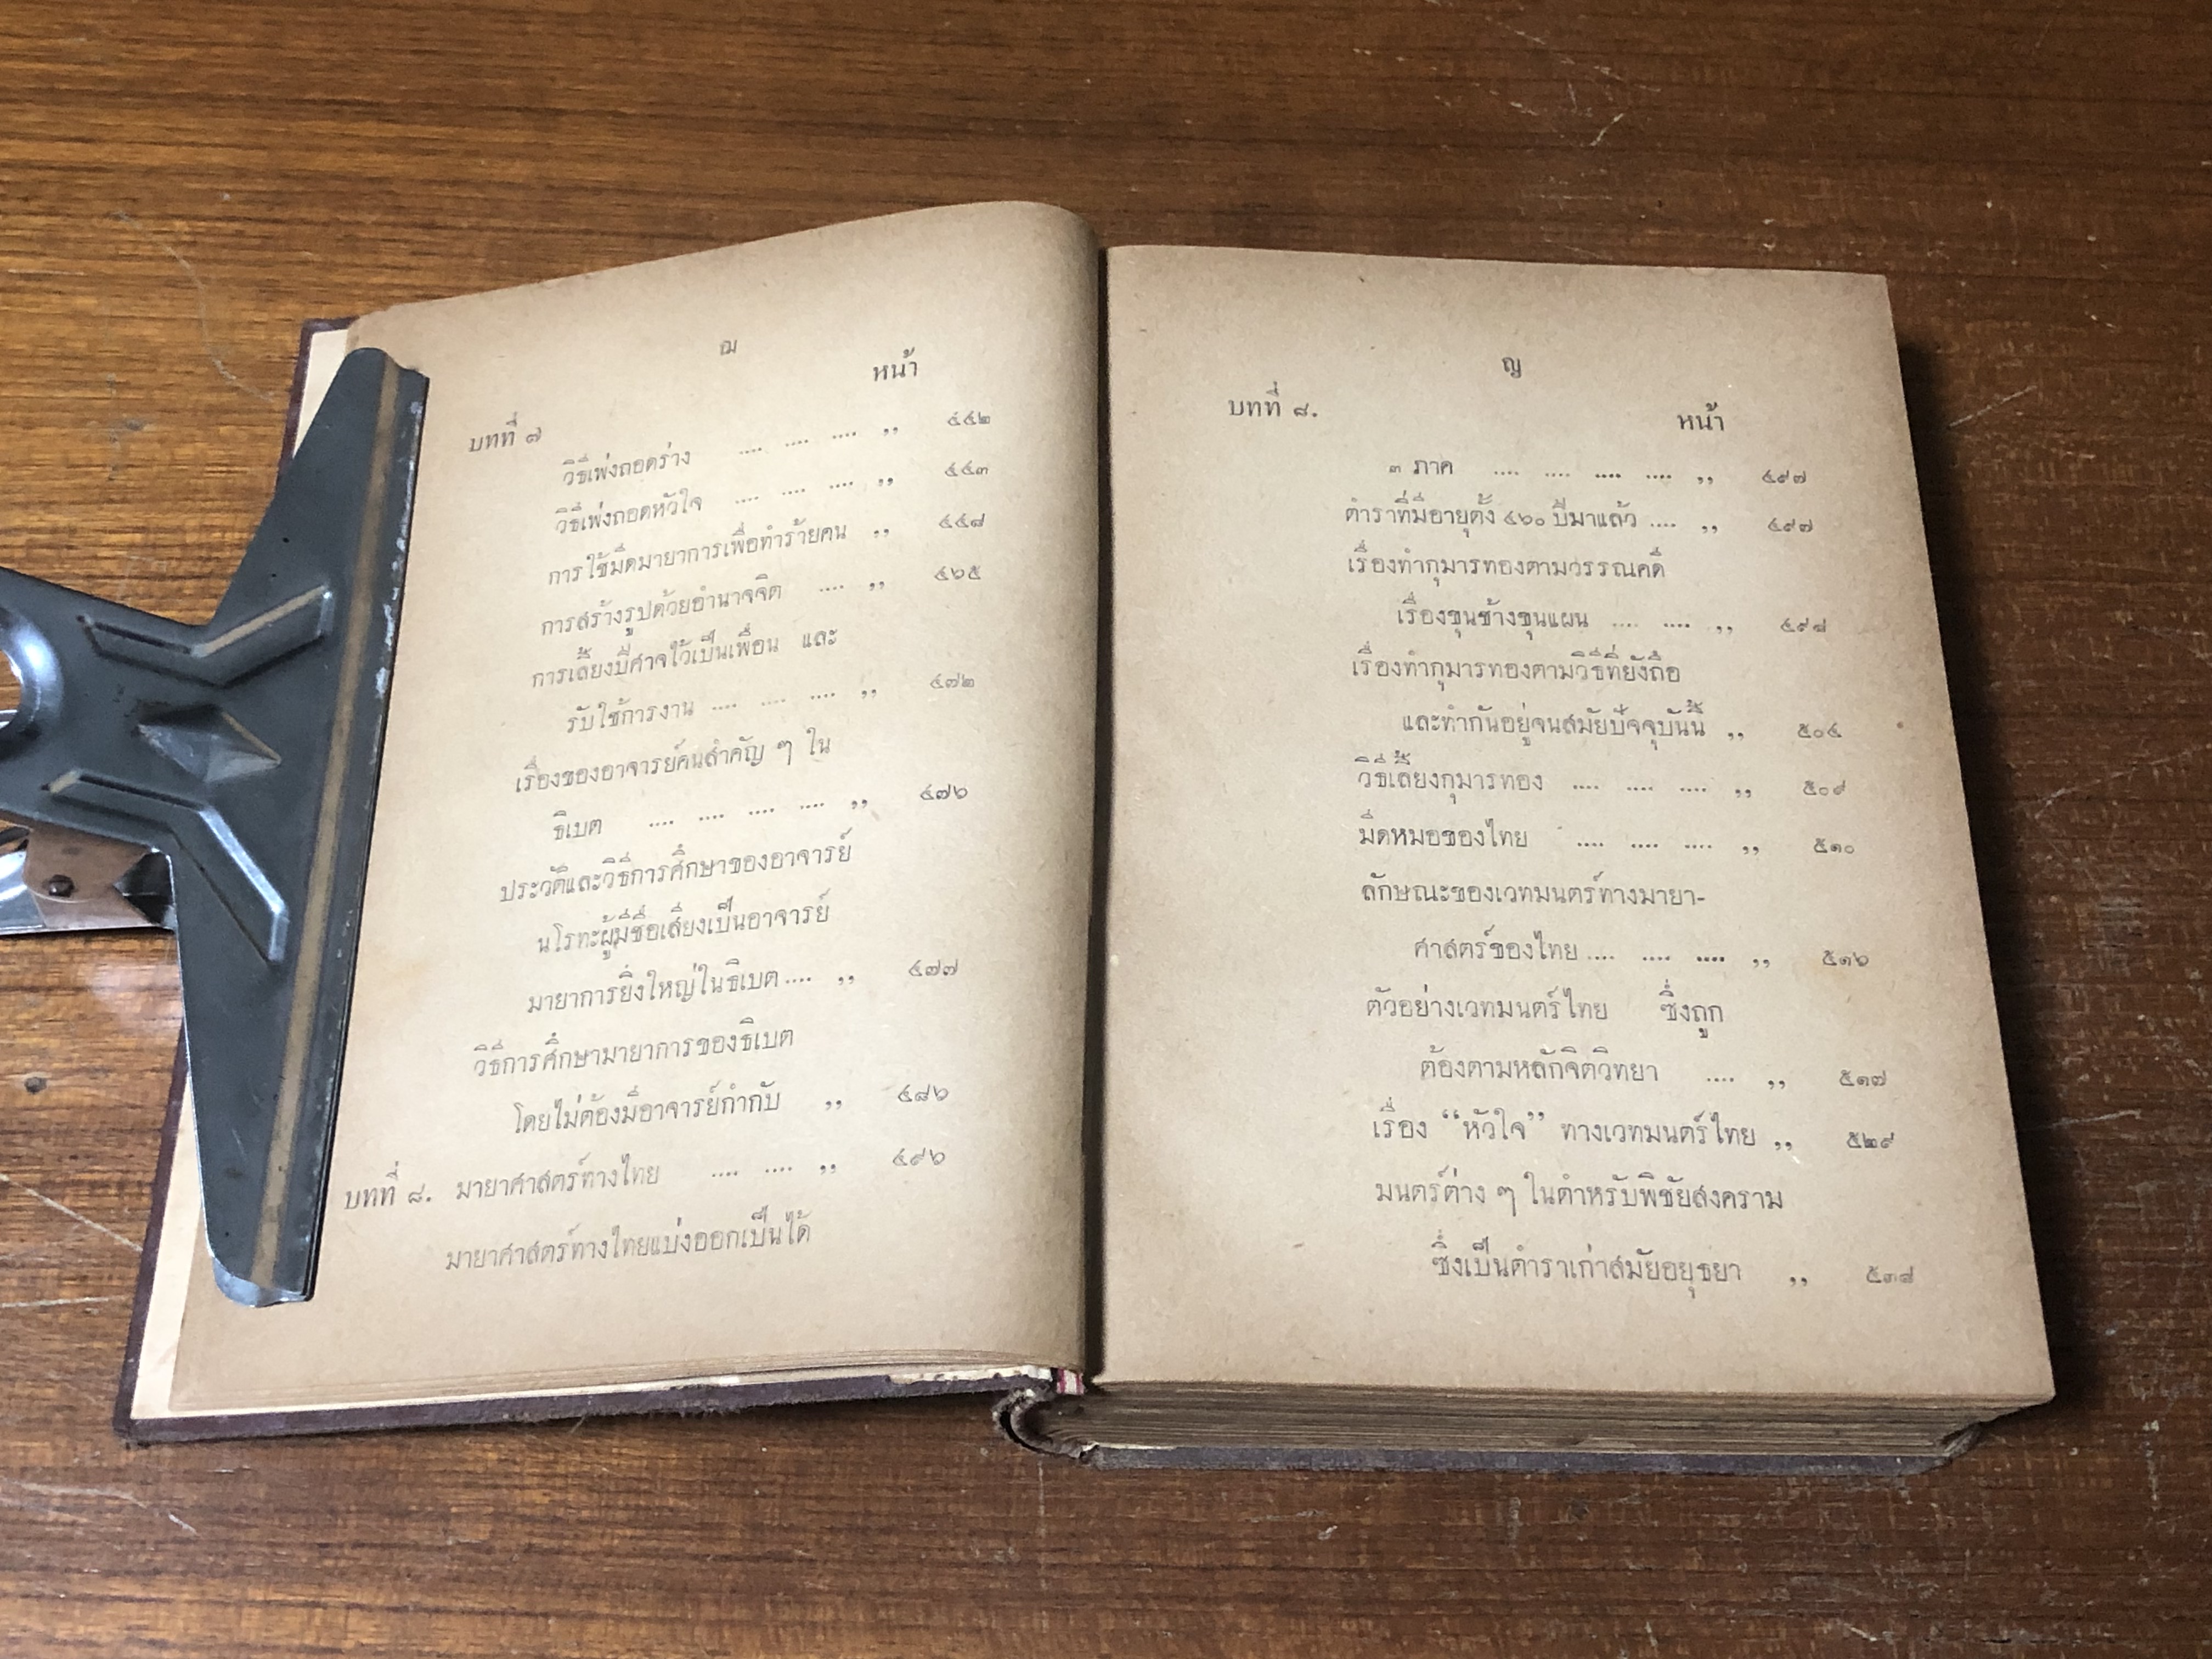 ฌ
หน้า
บทที่ ๗
วิธีเพ่งถอดร่าง .... .... .... ,, ๔๔๒
วิธีเพ่งถอดหัวใจ .... .... .... ,, ๔๔๓
การใช้มีดมายาการเพื่อทำร้ายคน ,, ๔๔๘
การสร้างรูปด้วยอำนาจจิต .... ,, ๔๖๕
การเลี้ยงปีศาจไว้เป็นเพื่อน และ
รับใช้การงาน .... .... .... ,, ๔๗๒
เรื่องของอาจารย์คนสำคัญ ๆ ใน
ธิเบต .... .... .... .... ,, ๔๗๖
ประวัติและวิธีการศึกษาของอาจารย์
นโรทะผู้มีชื่อเสียงเป็นอาจารย์
มายาการยิ่งใหญ่ในธิเบต .... ,, ๔๗๗
วิธีการศึกษามายาการของธิเบต
โดยไม่ต้องมีอาจารย์กำกับ ,, ๔๘๖
บทที่ ๘. มายาศาสตร์ทางไทย .... .... ,, ๔๙๖
มายาศาสตร์ทางไทยแบ่งออกเป็นได้
ญ
บทที่ ๘.
หน้า
๓ ภาค .... .... .... .... ,, ๔๙๗
ตำราที่มีอายุตั้ง ๔๖๐ ปีมาแล้ว .... ,, ๔๙๗
เรื่องทำกุมารทองตามวรรณคดี
เรื่องขุนช้างขุนแผน .... .... ,, ๔๙๘
เรื่องทำกุมารทองตามวิธีที่ยังถือ
และทำกันอยู่จนสมัยปัจจุบันนี้ ,, ๕๐๔
วิธีเลี้ยงกุมารทอง .... .... .... ,, ๕๐๙
มีดหมอของไทย .... .... .... ,, ๕๑๐
ลักษณะของเวทมนตร์ทางมายา-
ศาสตร์ของไทย .... .... .... ,, ๕๑๖
ตัวอย่างเวทมนตร์ไทย ซึ่งถูก
ต้องตามหลักจิตวิทยา .... ,, ๕๑๗
เรื่อง “หัวใจ” ทางเวทมนตร์ไทย ,, ๕๒๙
มนตร์ต่าง ๆ ในตำหรับพิชัยสงคราม
ซึ่งเป็นตำราเก่าสมัยอยุธยา ,, ๕๓๘